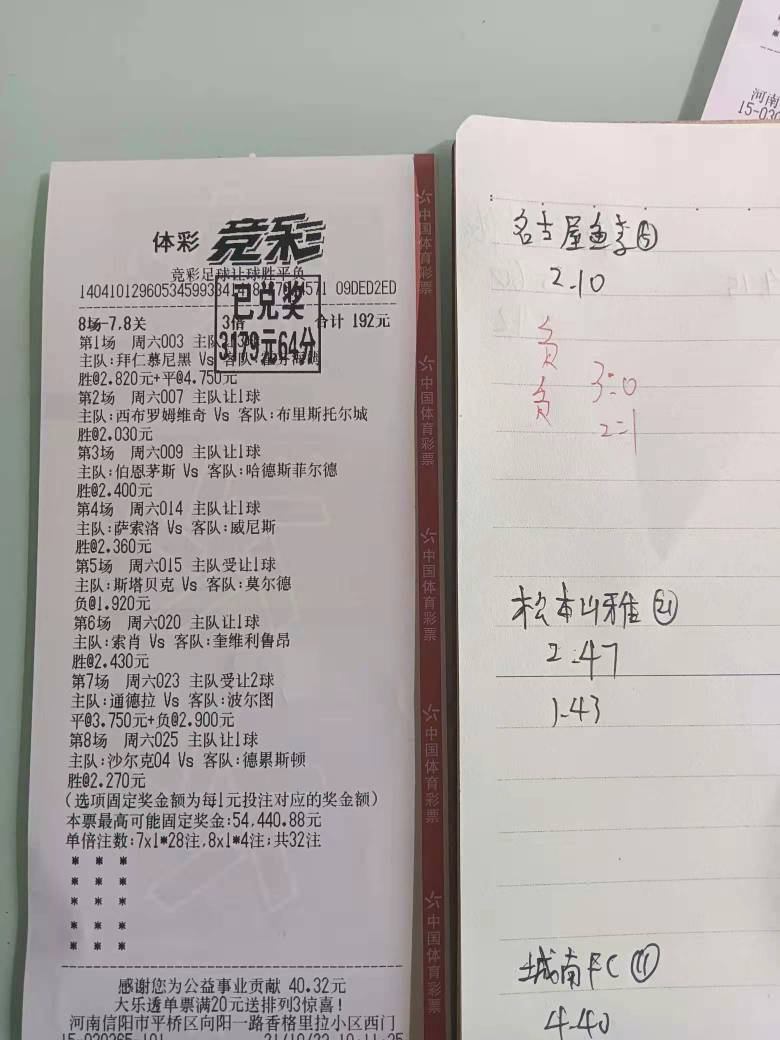 体彩 竞彩
竞彩足球让球胜平负
已兑奖
3179元64分
8场-7.8关 3倍 合计 192元
第1场 周六003 主队
主队:拜仁慕尼黑 Vs 客队:霍芬海姆
胜@2.820元+平@4.750元
第2场 周六007 主队让1球
主队:西布罗姆维奇 Vs 客队:布里斯托尔城
胜@2.030元
第3场 周六009 主队让1球
主队:伯恩茅斯 Vs 客队:哈德斯菲尔德
胜@2.400元
第4场 周六014 主队让1球
主队:萨索洛 Vs 客队:威尼斯
胜@2.360元
第5场 周六015 主队受让1球
主队:斯塔贝克 Vs 客队:莫尔德
负@1.920元
第6场 周六020 主队让1球
主队:索肖 Vs 客队:奎维利鲁昂
胜@2.430元
第7场 周六023 主队受让2球
主队:通德拉 Vs 客队:波尔图
平@3.750元+负@2.900元
第8场 周六025 主队让1球
主队:沙尔克04 Vs 客队:德累斯顿
胜@2.270元
(选项固定奖金额为每1元投注对应的奖金额)
本票最高可能固定奖金:54,440.88元
单倍注数:7x1*28注,8x1*4注;共32注
* * *
* * *
* * *
* * *
* * *
感谢您为公益事业贡献 40.32元
大乐透单票满20元送排列3惊喜!
河南信阳市平桥区向阳一路香格里拉小区西门
中国体育彩票
中国体育彩票
中国体育彩票
中国体育彩票
中国体育彩票
河南
15-030
名古屋
2.10
负
负 3:0
2=1
松本山雅 21
2.47
1.43
城南FC 11
4.40